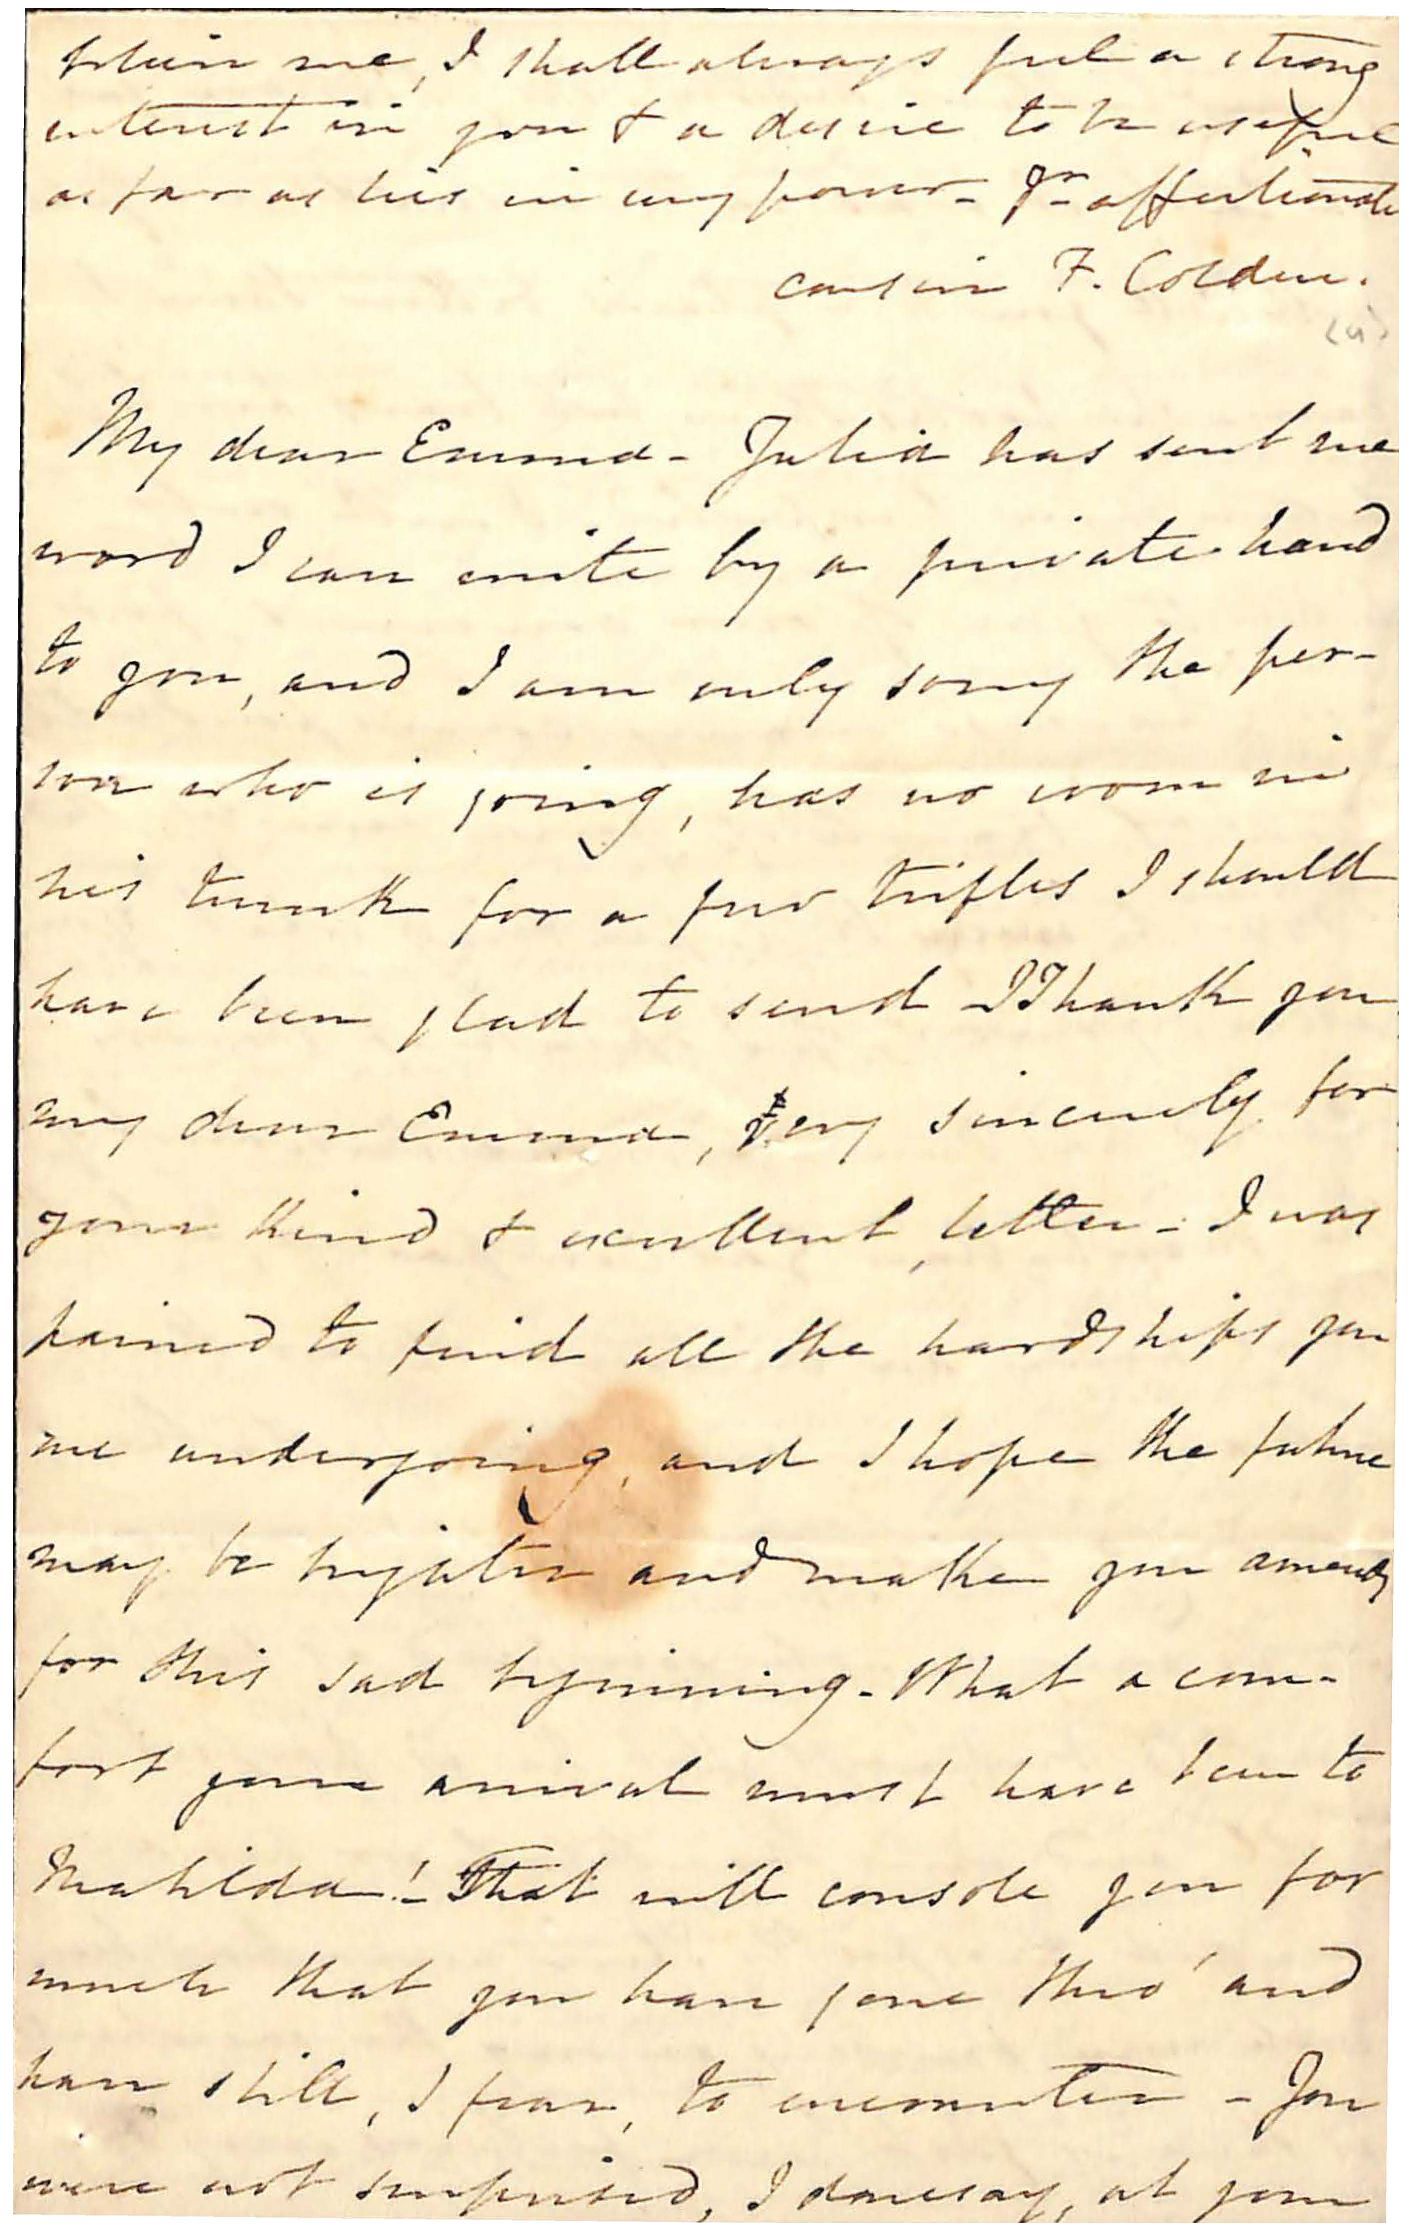 me, I shall always feel a strong
interest in you & a desire to be useful
as far as lies in my power - Yr affectionate
cousin F. Colden.
(4)
My dear Emma - Julia has sent me
word I can write by a private hand
to you, and I am only sorry the per-
son who is going, has no room in
his trunk for a few trifles I should
have been glad to send - I Thank you
my dear Emma, very sincerely for
your kind & excellent letter - I was
pained to find all the hardships you
are undergoing, and I hope the future
may be brighter and make you amends
for this sad beginning - What a com-
fort your arrival must have been to
Matilda! - That will console you for
much that you have gone thro' and
have still, I fear, to encounter - You
were not surprised, I daresay, at your